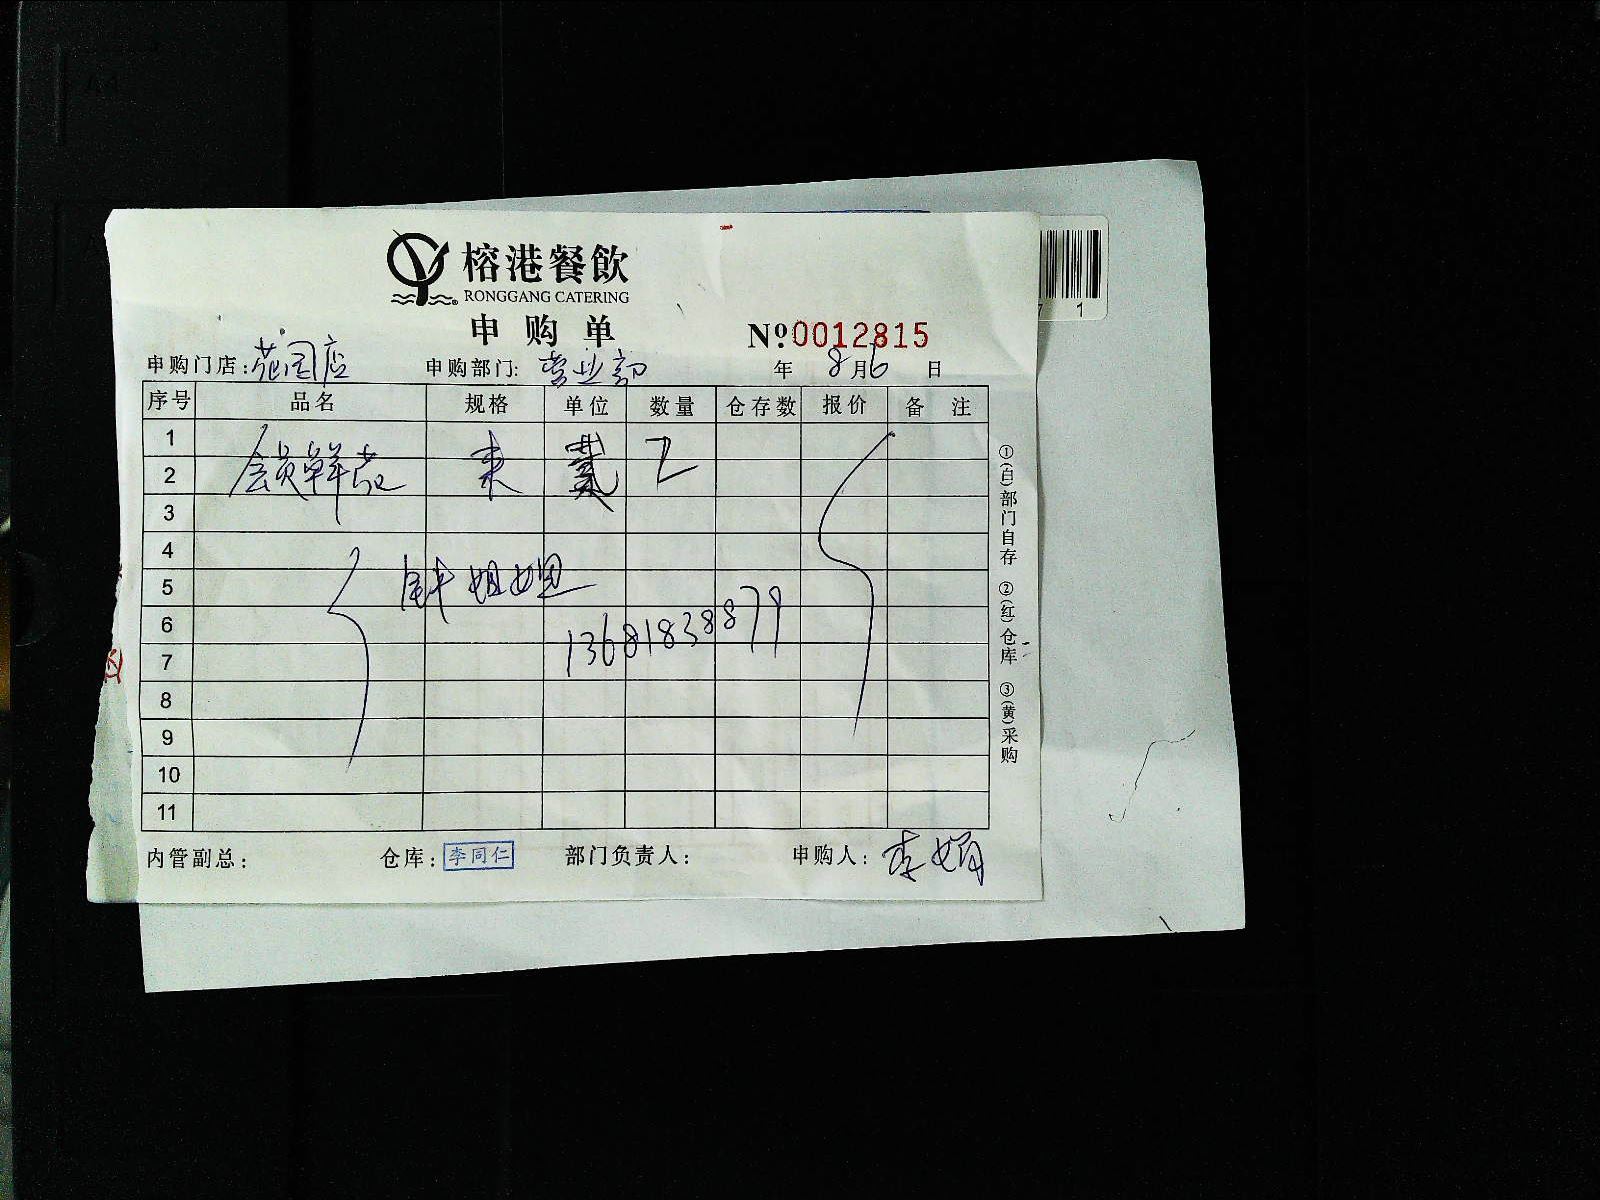 榕港餐飲
RONGGANG CATERING
申购单
№0012815
申购门店:花园店 申购部门:营业部 年 8月6 日
序号 品名 规格 单位 数量 仓存数 报价 备 注
1
2 会员鲜花 束 2
3
4
5 姐姐
6 13681838879
7
8
9
10
11
①(白)部门自存 ②(红)仓库 ③(黄)采购
内管副总: 仓库:李同仁 部门负责人: 申购人:李娟
7 1